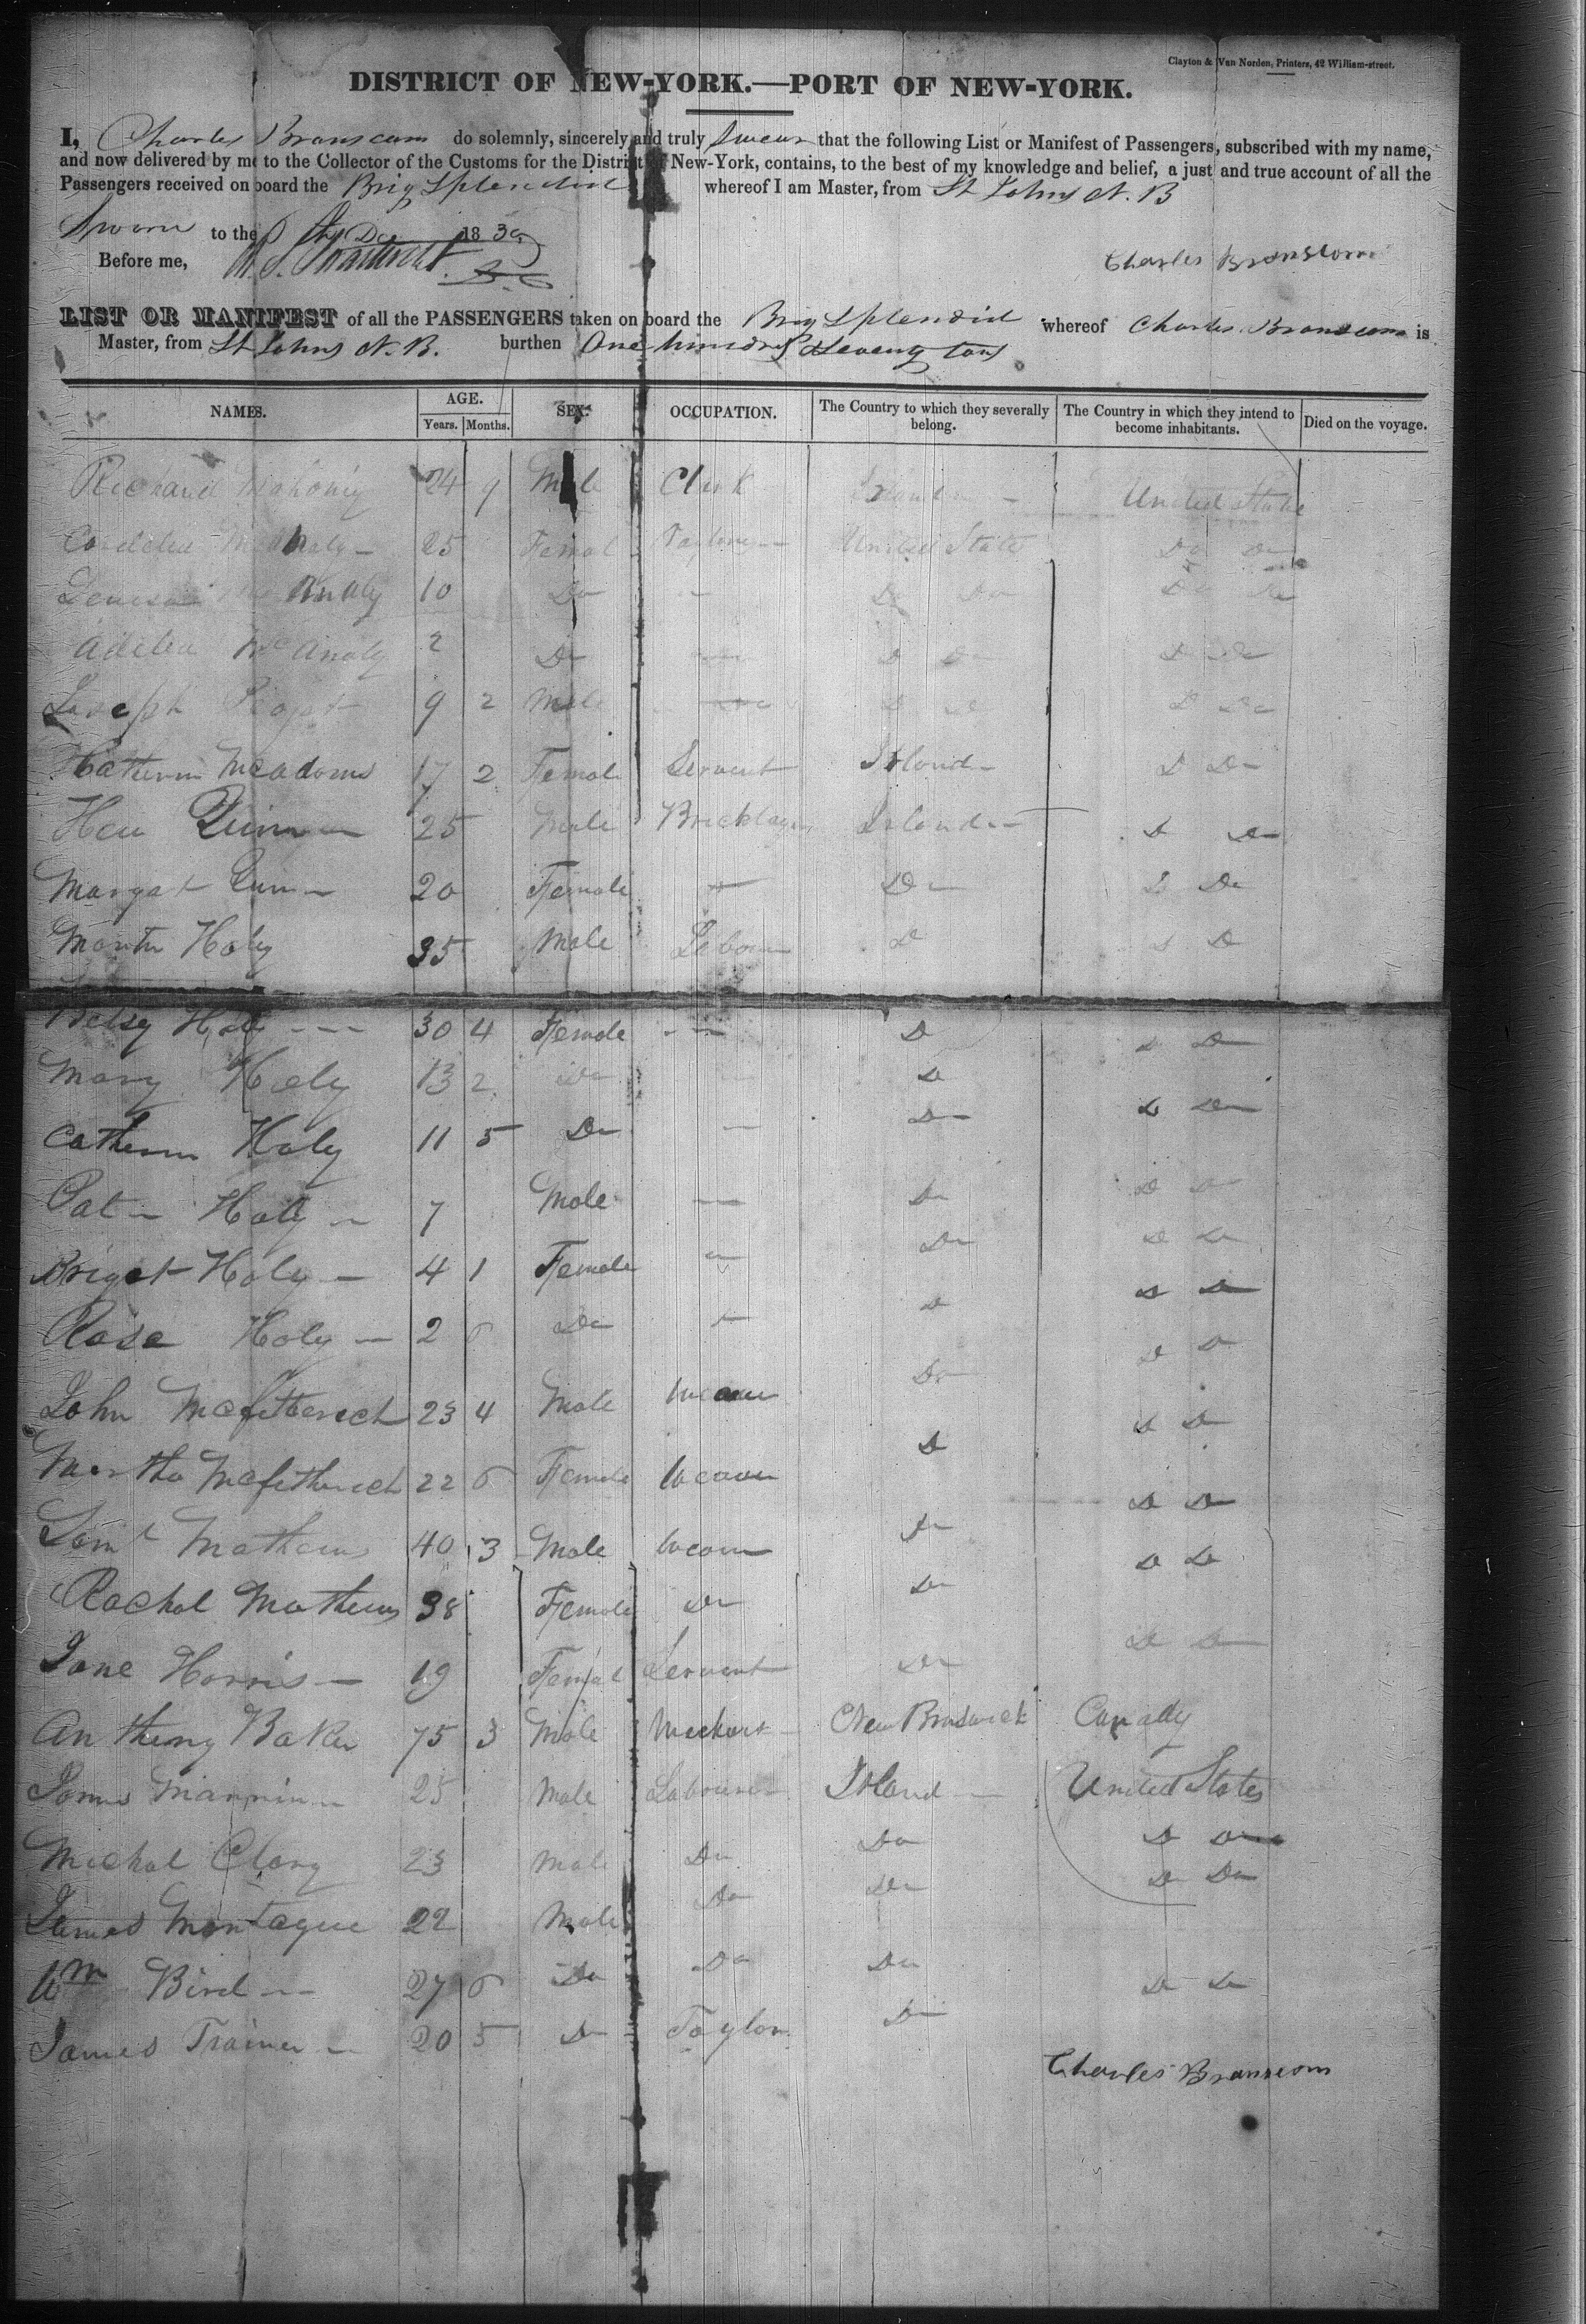 Clayton & Van Norden, Printers, 42 William-street.
DISTRICT OF NEW-YORK.—PORT OF NEW-YORK.
I, Charles Branscom do solemnly, sincerely and truly Swear that the following List or Manifest of Passengers, subscribed with my name,
and now delivered by me to the Collector of the Customs for the District of New-York, contains, to the best of my knowledge and belief, a just and true account of all the
Passengers received on board the Brig Splendid whereof I am Master, from St Johns N.B
Sworn to the 18 30
Before me,
Charles Branscom
LIST OR MANIFEST of all the PASSENGERS taken on board the Brig Splendid whereof Charles Branscom is
Master, from St Johns N.B. burthen One hundred Seventy tons
NAMES. AGE. SEX. OCCUPATION. The Country to which they severally belong. The Country in which they intend to become inhabitants. Died on the voyage.
Years. Months.
Richard Mahony 24 9 Male Clerk Irland United State
25 Female United State Do Do
10 Do Do Do Do Do
Adelia McAnaly 2 Do D Do D Do
Joseph 9 2 Male D Do D Do
Hatherin McAdoms 17 2 Female Servent Irland D Do
Quinn 25 Male Bricklayer Irland D Do
Margat Quinn 20 Female Do D Do
Martin Haly 35 Male Labour D D D
Betsy Haly 30 4 Female D D D
Mary Haly 13 2 Do D D Do
Catherin Haly 11 5 Do Do D D
Pat Haly 7 Male Do D D
Briget Haly 4 1 Female Do D D
Rose Haly 2 6 Do D D D
John Mcfetherich 23 4 Male Weaver Do D D
Martha Mcfetherich 22 6 Female Weaver D D D
Saml Mathews 40 3 Male Weaver Do D D
Rachal Mathews 38 Female Do Do D D
Jane Harris 19 Femal Servent Do
Anthony Baker 75 3 Male New Brunswick Canady
James Mannin 25 Male Labourer Irland United States
Michal Clary 23 Male Do Do D Do
James Montague 22 Male Do Do Do Do
Wm Bird 27 6 Do Do Do D D
James Trainer 20 5 D Taylor Do
Charles Branscom